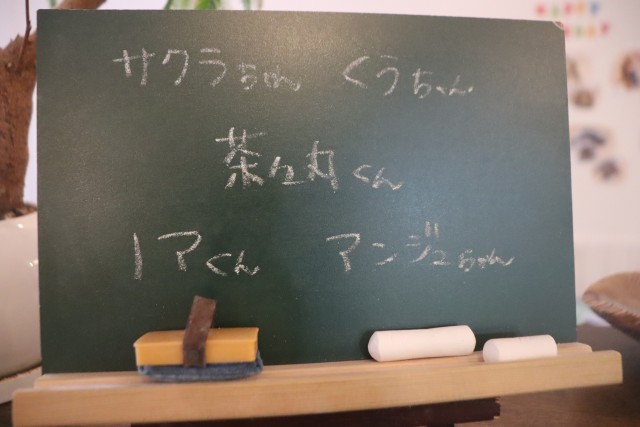 サクラちゃん くうちゃん
茶々丸くん
ノアくん アンジュちゃん